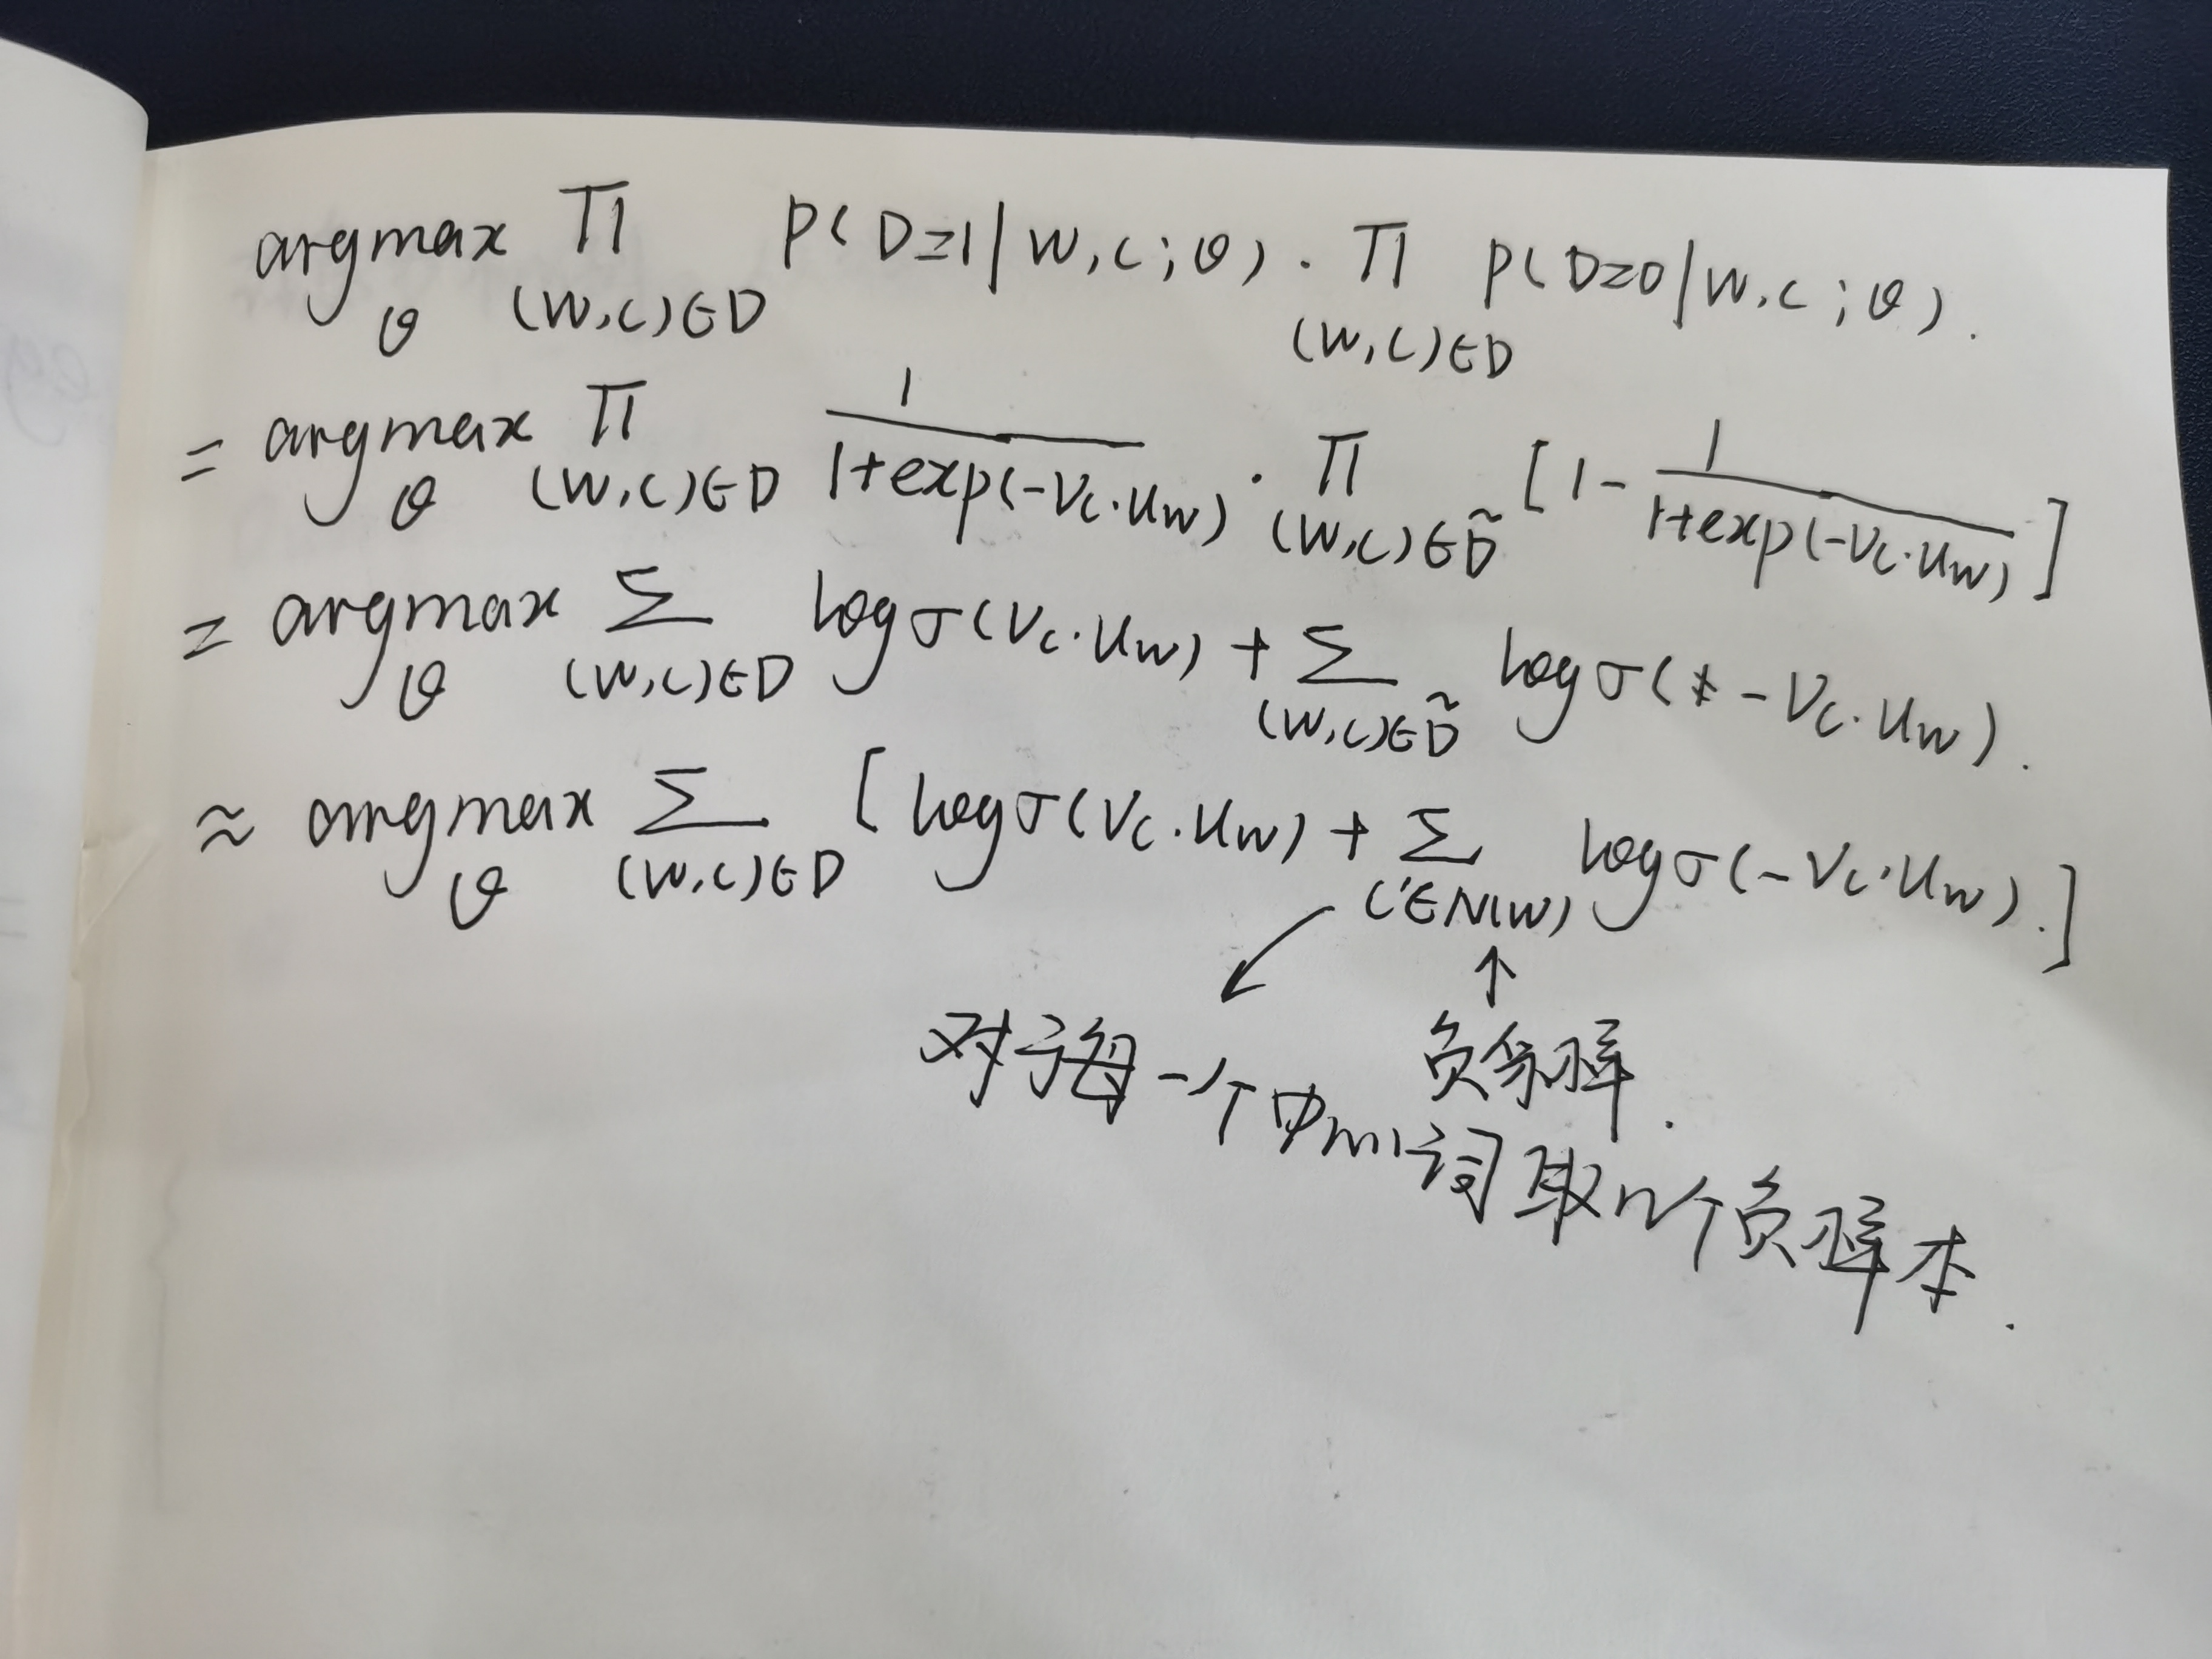 argmax_θ ∏_(w,c)∈D p(D=1|w,c;θ) · ∏_(w,c)∈D p(D=0|w,c;θ).
= argmax_θ ∏_(w,c)∈D 1/(1+exp(-Vc·Uw)) · ∏_(w,c)∈D̃ [1 - 1/(1+exp(-Vc·Uw))]
= argmax_θ Σ_(w,c)∈D logσ(Vc·Uw) + Σ_(w,c)∈D̃ logσ(-Vc·Uw).
≈ argmax_θ Σ_(w,c)∈D [logσ(Vc·Uw) + Σ_c'∈N(w) logσ(-Vc·Uw).]
负采样.
对于每一个中心词取n个负样本.